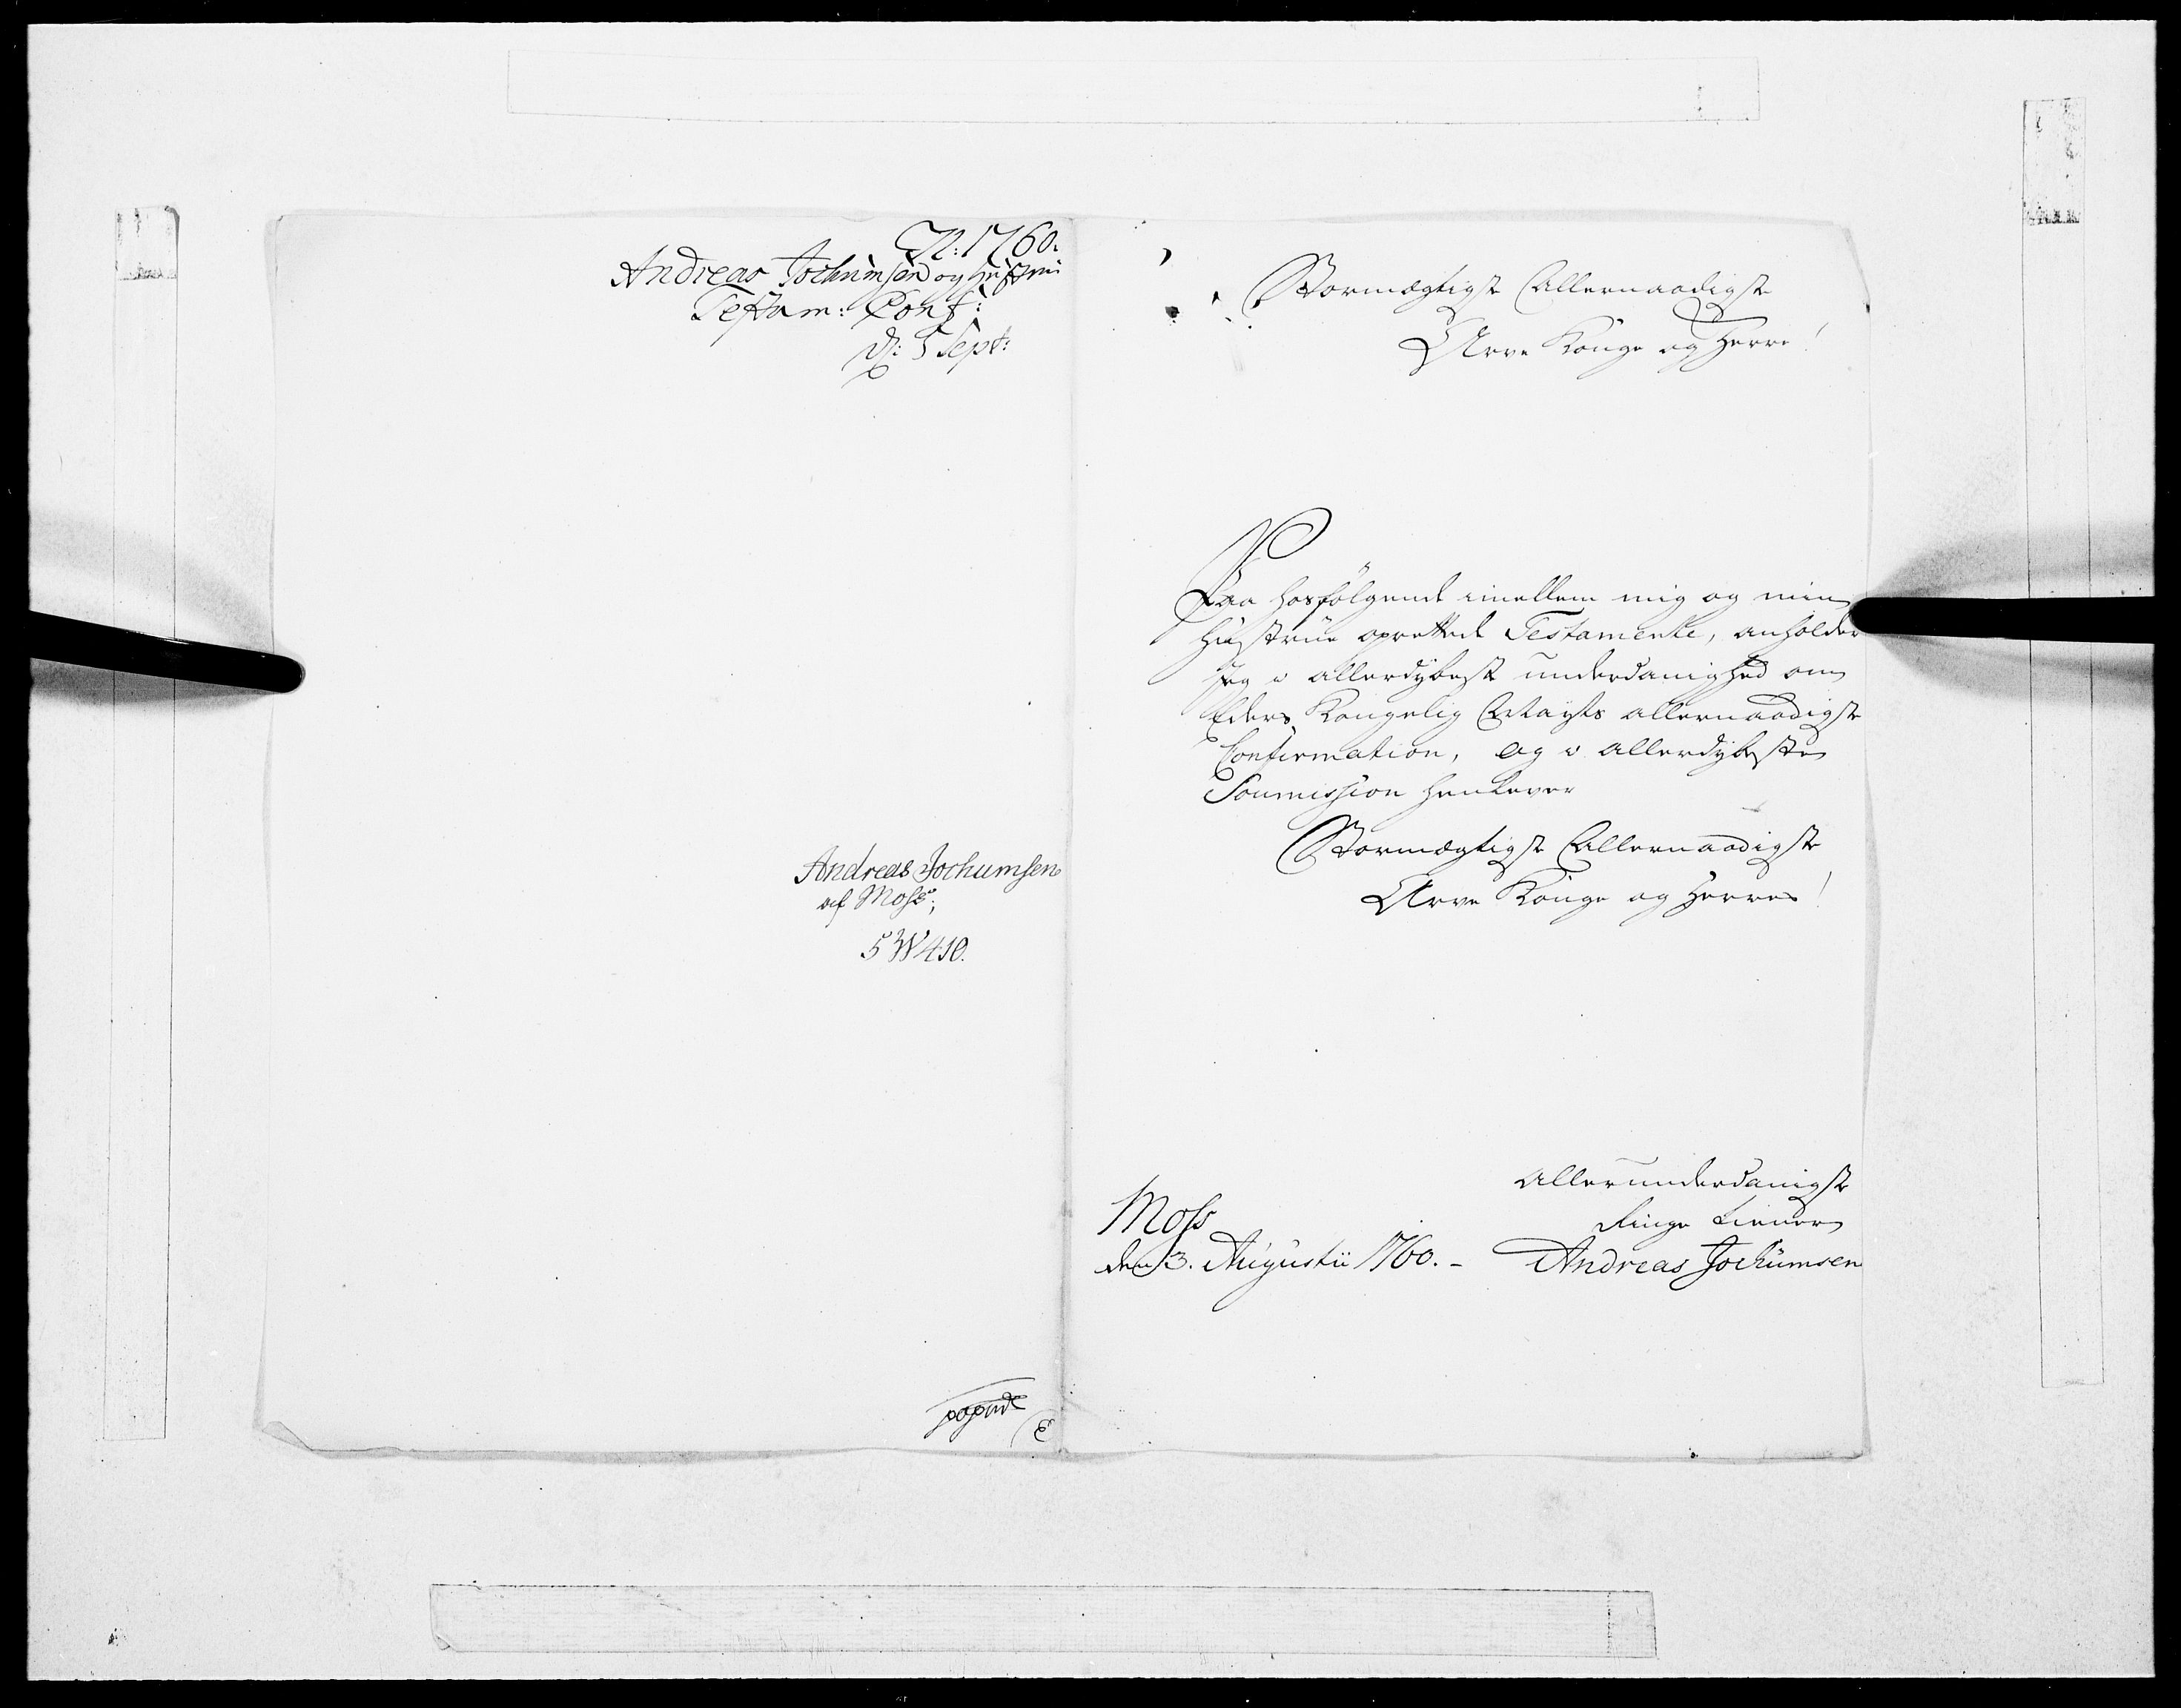 N: 1760.
Andreas Jochumsen og Hustrue
Testam: Conf:
d: 5 Sept:
Andreas Jochumsen
af Moss;
5 W 410.
Stormægtigste Allernaadigste
Arve Konge og Herre!
Paa hosfølgende imellem mig og min
Hustrüe oprettede Testamente, anholder
jeg i allerdybeste underdanighed om
Eders Kongelig Mayts allernaadigste
Confirmation, og i allerdybeste
Soumission henlever
Stormægtigste Allernaadigste
Arve Konge og Herres!
Allerunderdanigste
ringe tiener
Moss
den 3. Augustii 1760. - Andreas Jochümsen